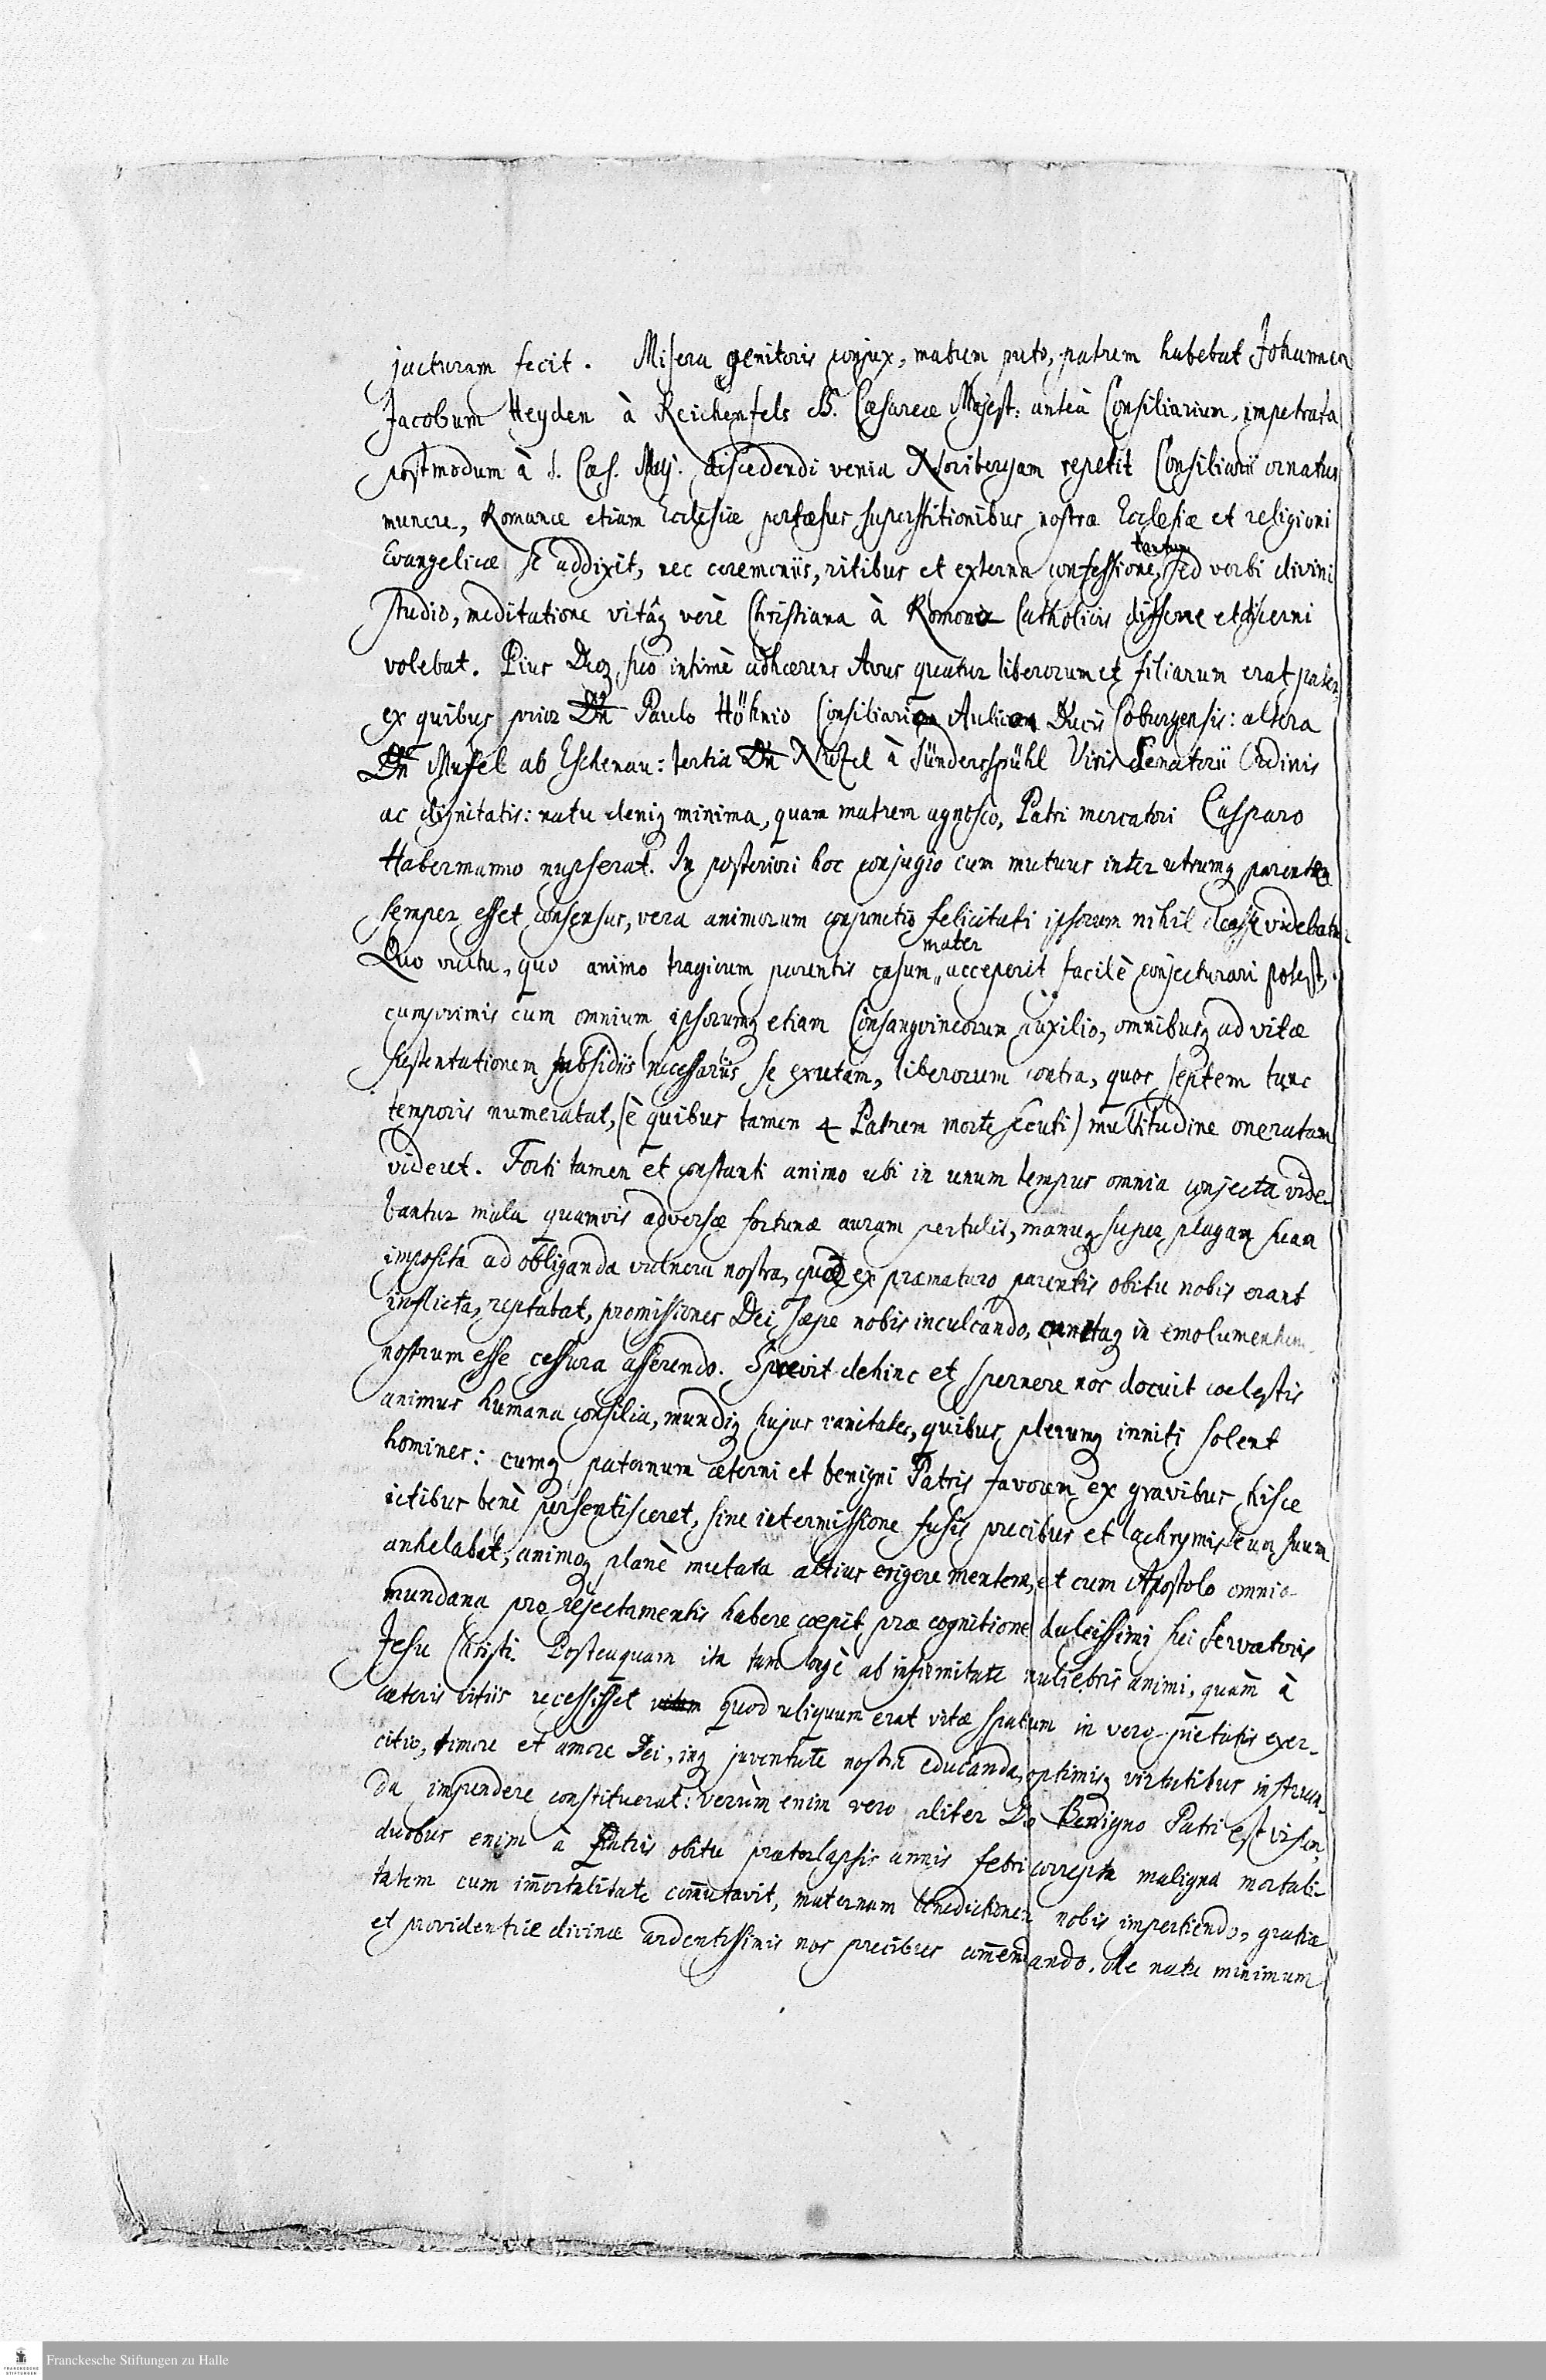 jacturam fecit. Misera genitoris conjux, matrem puto, patrem habebat Johannem
Jacobum Heyden à Reichenfels S. Cæsareæ Majest: anteà Consiliarium, impetrata
postmodum à S. Cæs. Maj. discedendi venia Noribergam repetit Consiliarii ornatus
munere, Romanæ etiam Ecclesiæ pertæsus superstitionibus nostræ Ecclesiæ et religioni
Evangelicæ se addixit, nec ceremoniis, ritibus et externa confessione, tantum sed verbi divini
studio, meditatione vitâq verè Christiana à Romano Catholicis differre et discerni
volebat. Pius Deoq suo intimè adhærens Avus quatuor liberorum et filiarum erat pater,
ex quibus prior Dn̄ Paulo Höhnio Consiliario Aulico Ducis Coburgensis: altera
Dn̄ Mufel ab Eschenau: tertia Dn̄ Nützel à Sünderspühl Viris Senatorii Ordinis
ac dignitatis: natu deniq minima, quam matrem agnosco, Patri mercatori Casparo
Habermanno nupserat. In posteriori hoc conjugio cum mutuus inter utrumq parentem
semper esset consensus, vera animorum conjunctio felicitati ipsorum nihil deesse videbatur
Quo vultu, quo animo tragicum parentis casum mater acceperit facilè conjecturari potest,
cumprimis cum omnium ipsorumq etiam Consangvineorum auxilio, omnibusq ad vitæ
sustentationem subsidiis necessariis se exutam, liberorum contra, quos septem tunc
temporis numerabat, (è quibus tamen 4 Patrem morte secuti) multitudine oneratam
videret. Forti tamen et constanti animo ubi in unum tempus omnia conjecta vide-
bantur mala quamvis adversæ fortunæ auram pertulit, manuq super plagam suam
imposita ad obliganda vulnera nostra, quæ ex præmaturo parentis obitu nobis erant
inflicta, reptabat, promissiones Dei sæpe nobis inculcando, cunctaq in emolumentum
nostrum esse cessura asserendo. Sprevit dehinc et spernere nos docuit coelestis
animus humana consilia, mundiq hujus vanitates, quibus plerumq inniti solent
homines: cumq paternum æterni et benigni Patris favorem ex gravibus hisce
ictibus benè persentisceret, sine intermissione fusis precibus et lachrymis eum suum
anhelabat, animoq planè mutata altius erigere mentem, et cum Apostolo omnia
mundana pro rejectamentis habere coepit præ cognitione dulcissimi sui Servatoris
Jesu Christi. Posteaquam ita tam longè ab infirmitate muliebris animi, quàm à
cæteris vitiis recessisset quod reliquum erat vitæ spatium in vero pietatis exer-
citio, timore et amore Dei, inq juventute nostra educanda, optimisq virtutibus instruen-
da impendere constituerat: verùm enim vero aliter Deo Benigno Patri est visum,
duobus enim à Patris obitu præterlapsis annis febri correpta maligna mortali-
tatem cum im̄ortalitate com̄utavit, maternam benedictionem nobis impertiendo, gratiæ
et providentiæ divinæ ardentissimis nos precibus com̄endando. Me natu minimum
Franckesche Stiftungen zu Halle